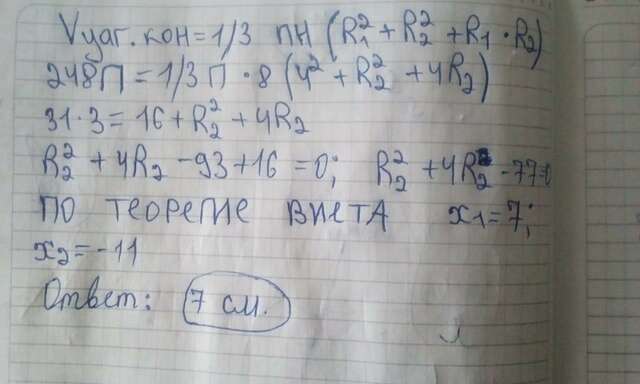 Vуаг.кон=1/3 ПН(R₁²+R₂²+R₁·R₂)
248П=1/3П·8(4²+R₂²+4R₂)
31·3=16+R₂²+4R₂
R₂²+4R₂-93+16=0; R₂²+4R₂-77=0
ПО ТЕОРЕМЕ ВИЕТА x₁=7;
x₂=-11
Ответ: 7 см.